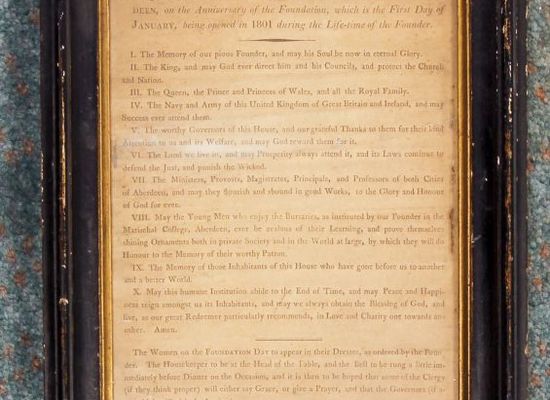 DEEN, on the Anniversary of the Foundation, which is the First Day of
JANUARY, being opened in 1801 during the Life-time of the Founder.
I. The Memory of our pious Founder, and may his Soul be now in eternal Glory.
II. The King, and may God ever direct him and his Councils, and protect the Church
and Nation.
III. The Queen, the Prince and Princess of Wales, and all the Royal Family.
IV. The Navy and Army of this United Kingdom of Great Britain and Ireland, and may
Success ever attend them.
V. The worthy Governors of this House, and our grateful Thanks to them for their kind
Attention to us and its Welfare, and may God reward them for it.
VI. The Land we live in, and may Prosperity always attend it, and its Laws continue to
defend the Just, and punish the Wicked.
VII. The Ministers, Provosts, Magistrates, Principals, and Professors of both Cities
of Aberdeen, and may they flourish and abound in good Works, to the Glory and Honour
of God for ever.
VIII. May the Young Men who enjoy the Bursaries, as instituted by our Founder in the
Marischal College, Aberdeen, ever be zealous of their Learning, and prove themselves
shining Ornaments both in private Society and in the World at large, by which they will do
Honour to the Memory of their worthy Patron.
IX. The Memory of those Inhabitants of this House who have gone before us to another
and a better World.
X. May this humane Institution abide to the End of Time, and may Peace and Happi-
ness reign amongst us its Inhabitants, and may we always obtain the Blessing of God, and
live, as our great Redeemer particularly recommends, in Love and Charity one towards ano-
ther. Amen.
The Women on the FOUNDATION DAY to appear in their Dresses, as ordered by the Foun-
der. The Housekeeper to be at the Head of the Table, and the Bell to be rung a little im-
mediately before Dinner on the Occasion, and it is then to be hoped that some of the Clergy
(if they think proper) will either say Grace, or give a Prayer, and that the Governors (if a